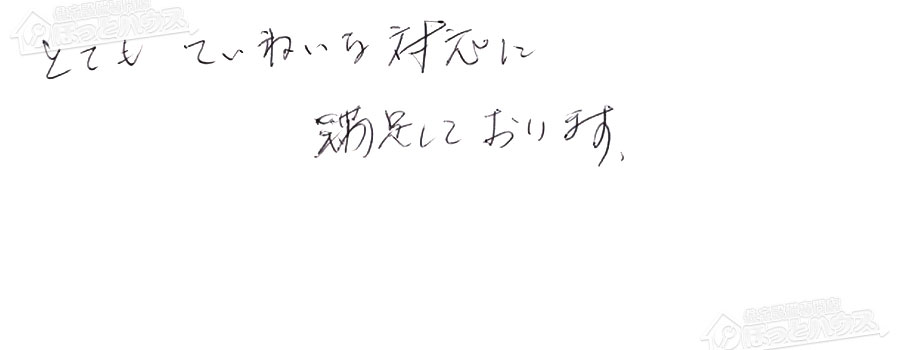 ほっとハウス
とても ていねいな対応に
満足しております。
ほっとハウス